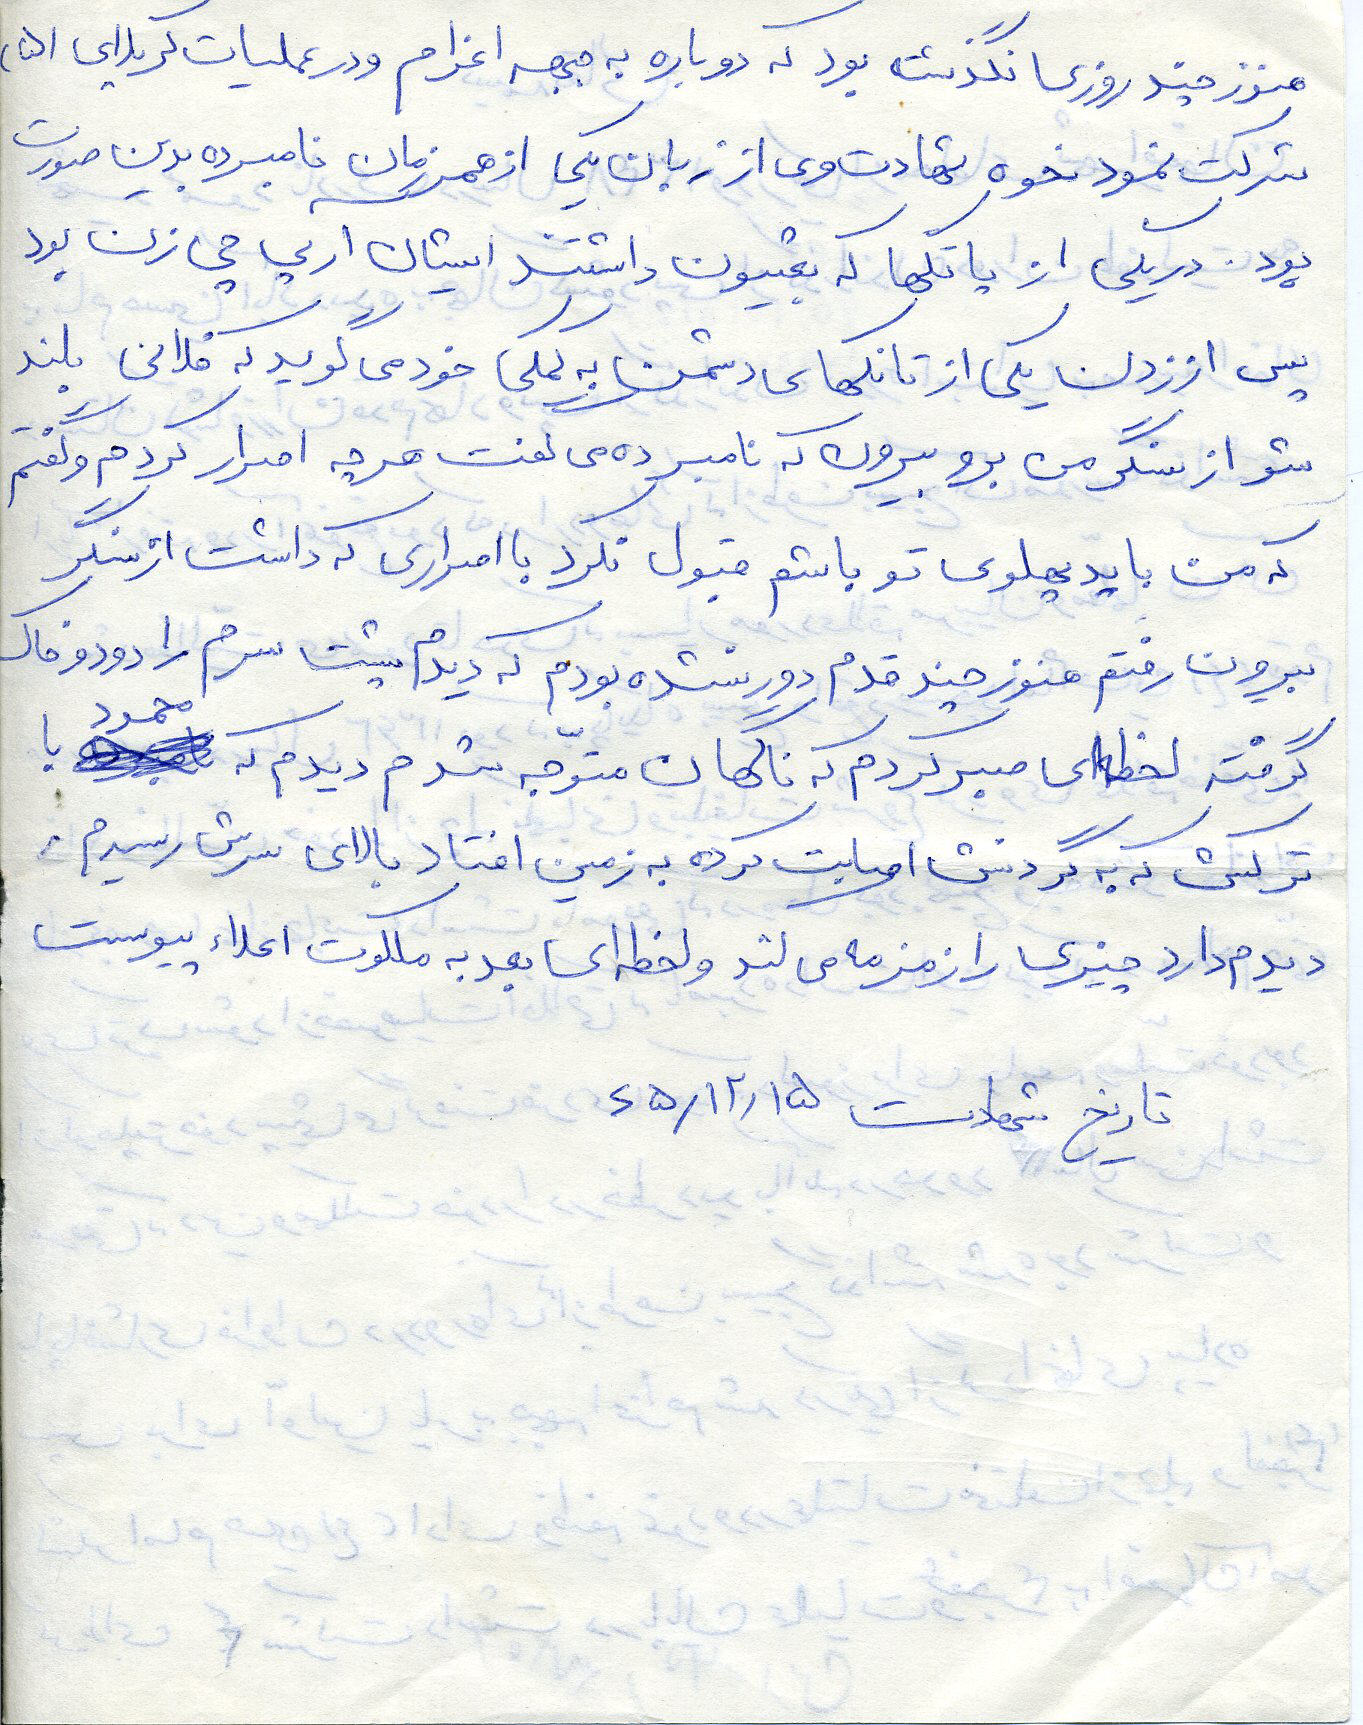 هنوز چند روزی نگذشته بود که دوباره به جبهه اعزام و در عملیات کربلای (۵)
شرکت نمود نحوه شهادت وی از زبان یکی از همرزمان نامبرده بدین صورت
بود. در یکی از پاتکها که بعثیون داشتند ایشان ارپی چی زن بود
پس از زدن یکی از تانکهای دشمن به کمکی خود می گوید که فلانی بلند
شو از سنگر من برو بیرون که نامبرده می گفت هرچه اصرار کردم و گفتم
که من باید پهلوی تو باشم قبول نکرد با اصراری که داشت از سنگر
بیرون رفتم هنوز چند قدم دور نشده بودم که دیدم پشت سرم را دود و خاک
گرفته لحظه‌ای صبر کردم که ناگهان متوّجه شدم دیدم که محمود با
ترکش که به گردنش اصابت کرده به زمین افتاد بالای سرش رسیدم،
دیدم دارد چیزی را زمزمه می کند و لحظه‌ای بعد به ملکوت اعلاء پیوست
تاریخ شهادت ۶۵/۱۲/۱۵